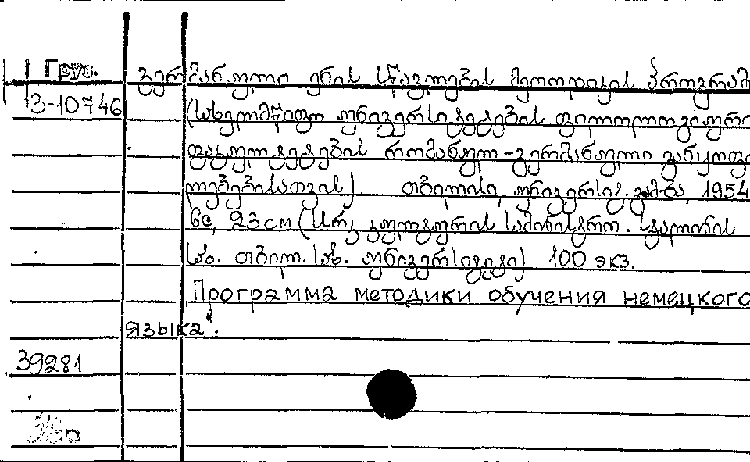 Груз.
გერმანული ენის სწავლების მეთოდიკის პროგრამ
3-10746
(სახელმწიფო უნივერსიტეტების ფილოლოგიური
ფაკულტეტების რომანულ-გერმანული განყოფი
ლებებისათვის) თბილისი, უნივერსიტ. გამ-ბა, 1954
6с, 23см (სსრკ კულტურის სამინისტრო. სტალინის
სახ. თბილ. სახ. უნივერსიტეტი) 100 экз.
Программа методики обучения немецкого
языка.
39281